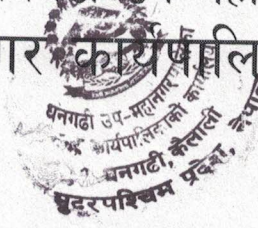 र कार्यपालि
धनगढी उप-महानगरपालिका
कार्यपालिकाको का
धनगढी, कैलाली
सुदूरपश्चिम प्रदेश, नेपा